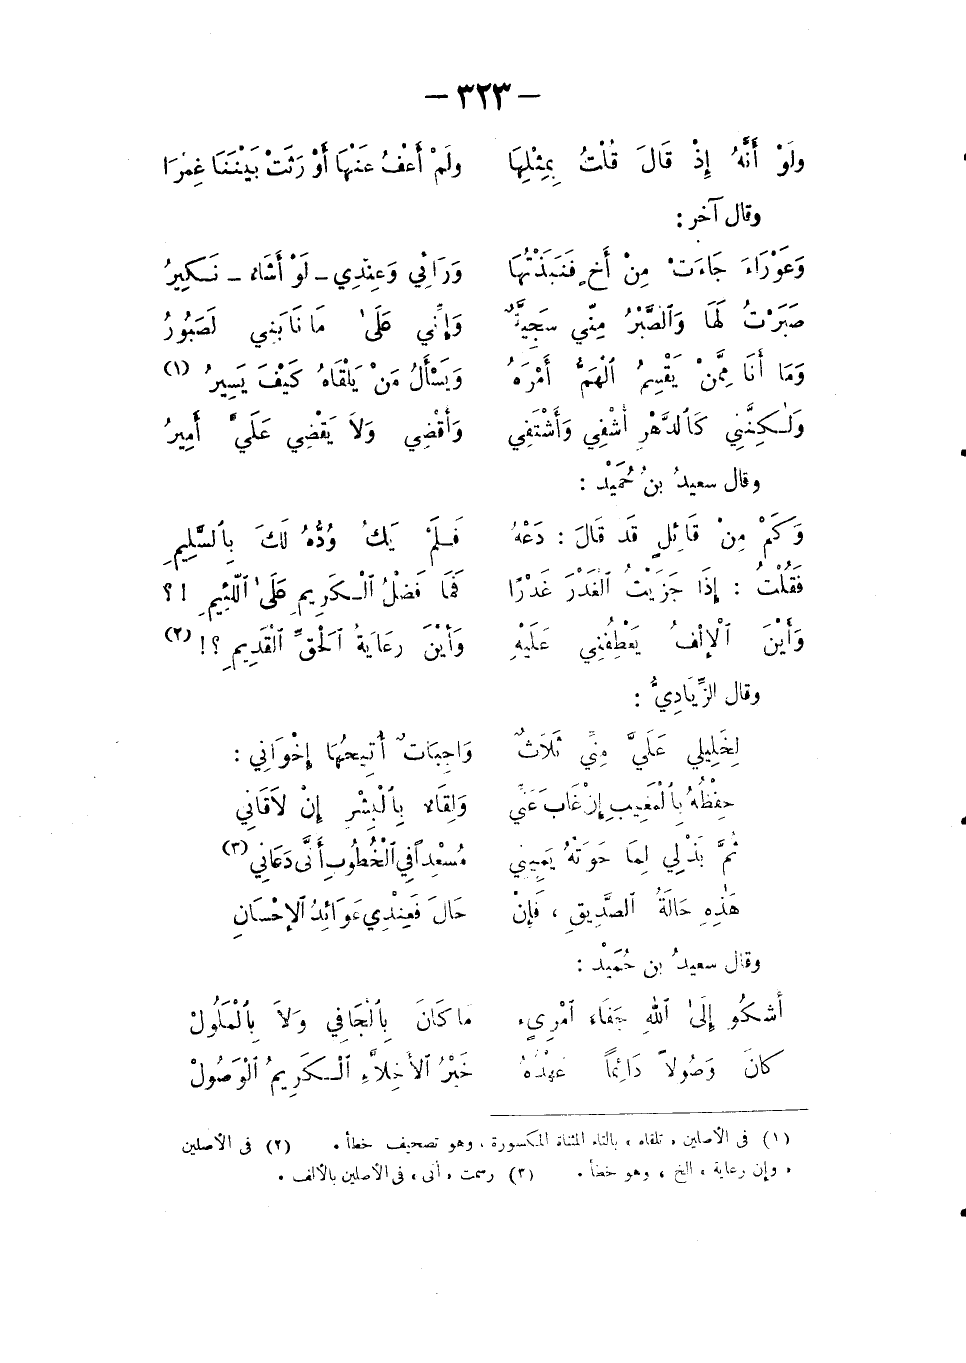 – ٣٢٣ –
ولَوْ أَنَّهُ إِذْ قَالَ قُلْتُ بِمِثْلِهَا ولَمْ أَعْفُ عَنْهَا أَوْ رَثَتْ بَيْنَنَا غِمْرَا
وقال آخر :
وَعَوْرَاءَ جَاءَتْ مِنْ أَخٍ فَنَبَذْتُهَا وَرَائِي وَعِنْدِي – لَوْ أَشَاءُ – نَـكِيرُ
صَبَرْتُ لَهَا وَٱلصَّبْرُ مِنِّي سَجِيَّةٌ وَإِنِّي عَلَىٰ مَا نَابَنِي لَصَبُورُ
وَمَا أَنَا مِمَّنْ يَقْسِمُ ٱلْهَمُّ أَمْرَهُ وَيَسْأَلُ مَنْ يَلْقَاهُ كَيْفَ يَسِيرُ (١)
وَلٰـكِنَّنِي كَٱلدَّهْرِ أَشْفِي وَأَشْتَفِي وَأَقْضِي وَلاَ يَقْضِي عَلَيَّ أَمِيرُ
وقال سعيدُ بنُ حُمَيْد :
وَكَمْ مِنْ قَائِلٍ قَد قَالَ : دَعْهُ فَـلَمْ يَكُ وُدُّهُ لَكَ بِٱلسَّلِيمِ
فَقُلْتُ : إِذَا جَزَيْتُ ٱلْغَدْرَ غَدْرًا فَمَا فَضْلُ ٱلْـكَرِيمِ عَلَىٰ ٱللَّئِيمِ !؟
وَأَيْنَ ٱلْإِلْفُ يَعْطِفُنِي عَلَيْهِ وَأَيْنَ رِعَايَةُ ٱلْحَقِّ ٱلْقَدِيمِ ؟! (٢)
وقال الزِّيَادِيُّ :
لِخَلِيلِي عَلَيَّ مِنِّي ثَلَاثٌ وَاجِبَاتٌ أُتِيحُهَا إِخْوَانِي :
حِفْظُهُ بِٱلْمَغِيبِ إِنْ غَابَ عَنِّي وَلِقَاءٌ بِٱلْبِشْرِ إِنْ لاَقَانِي
ثُمَّ بَذْلِي لِمَا حَوَتْهُ يَمِينِي مُسْعِدًا فِي ٱلْخُطُوبِ أَنَّى دَعَانِي (٣)
هَٰذِهِ حَالَةُ ٱلصَّدِيقِ ، فَإِنْ حَالَ فَعِنْدِي عَوَائِدُ ٱلإِحْسَانِ
وقال سعيدُ بن حُمَيْد :
أَشكُو إِلَىٰ ٱللهِ جَفَاءَ ٱمْرِيءٍ مَا كَانَ بِٱلْجَافِي وَلاَ بِٱلْمَلُولْ
كَانَ وَصُولاً دَائِمًا عَهْدُهُ خَيْرُ ٱلأَخِلاَّءِ ٱلْـكَرِيمُ ٱلْوَصُولْ
(١) فى الأصلين « تلقاه » بالتاء المثناة المكسورة ، وهو تصحيف خطأ . (٢) فى الأصلين
« وإن رعاية » الخ ، وهو خطأ . (٣) رسمت « أنى » فى الأصلين بالألف .